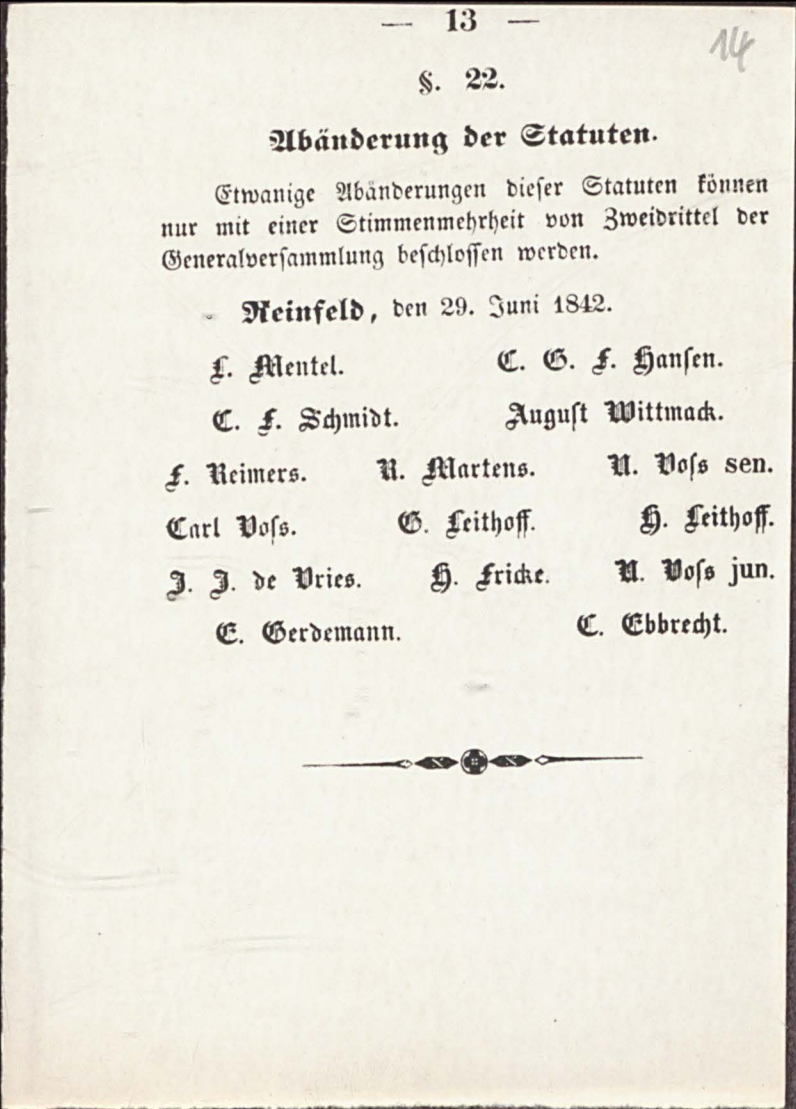 — 13 —
14
§. 22.
Abänderung der Statuten.
Etwanige Abänderungen dieser Statuten können
nur mit einer Stimmenmehrheit von Zweidrittel der
Generalversammlung beschlossen werden.
Reinfeld, den 29. Juni 1842.
L. Mentel. C. G. F. Hansen.
C. F. Schmidt. August Wittmack.
F. Reimers. R. Martens. A. Voss sen.
Carl Voss. G. Leithoff. H. Leithoff.
J. J. de Vries. H. Fricke. A. Voss jun.
E. Gerdemann. C. Ebbrecht.